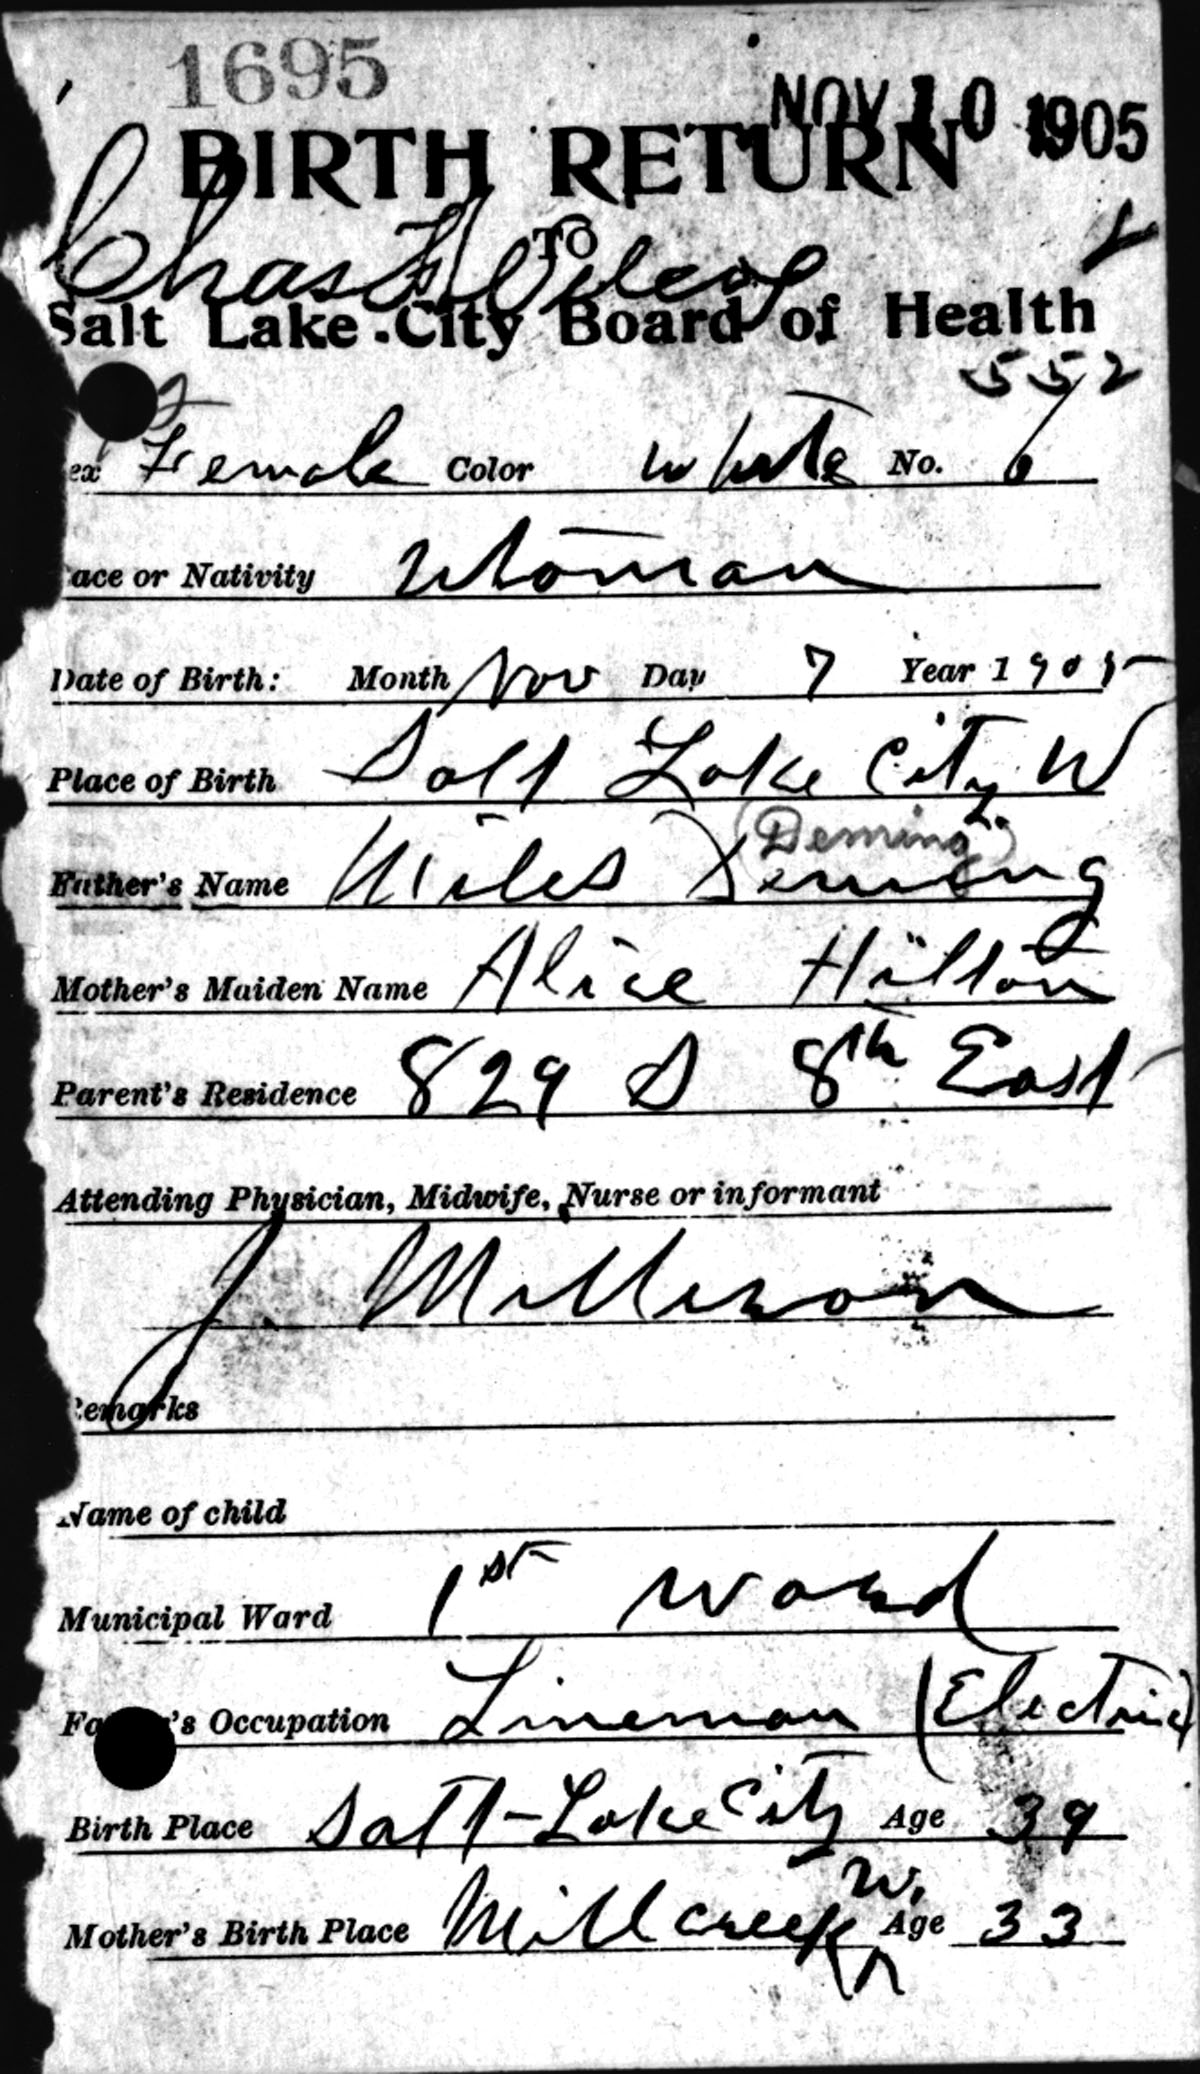 1695
NOV 10 1905
BIRTH RETURN
TO
Chas F Wilcox
Salt Lake City Board of Health
552
ex Female Color White No. 6
ace or Nativity Utonian
Date of Birth: Month Nov Day 7 Year 1905
Place of Birth Salt Lake City U
(Deming)
Father's Name Miles Deming
Mother's Maiden Name Alice Hilton
Parent's Residence 829 S 8th East
Attending Physician, Midwife, Nurse or informant
J. Milleson
emarks
Name of child
Municipal Ward 1st Ward
Fa 's Occupation Lineman (Electric)
Birth Place Salt-Lake City Age 39
Mother's Birth Place Millcreek Age 33